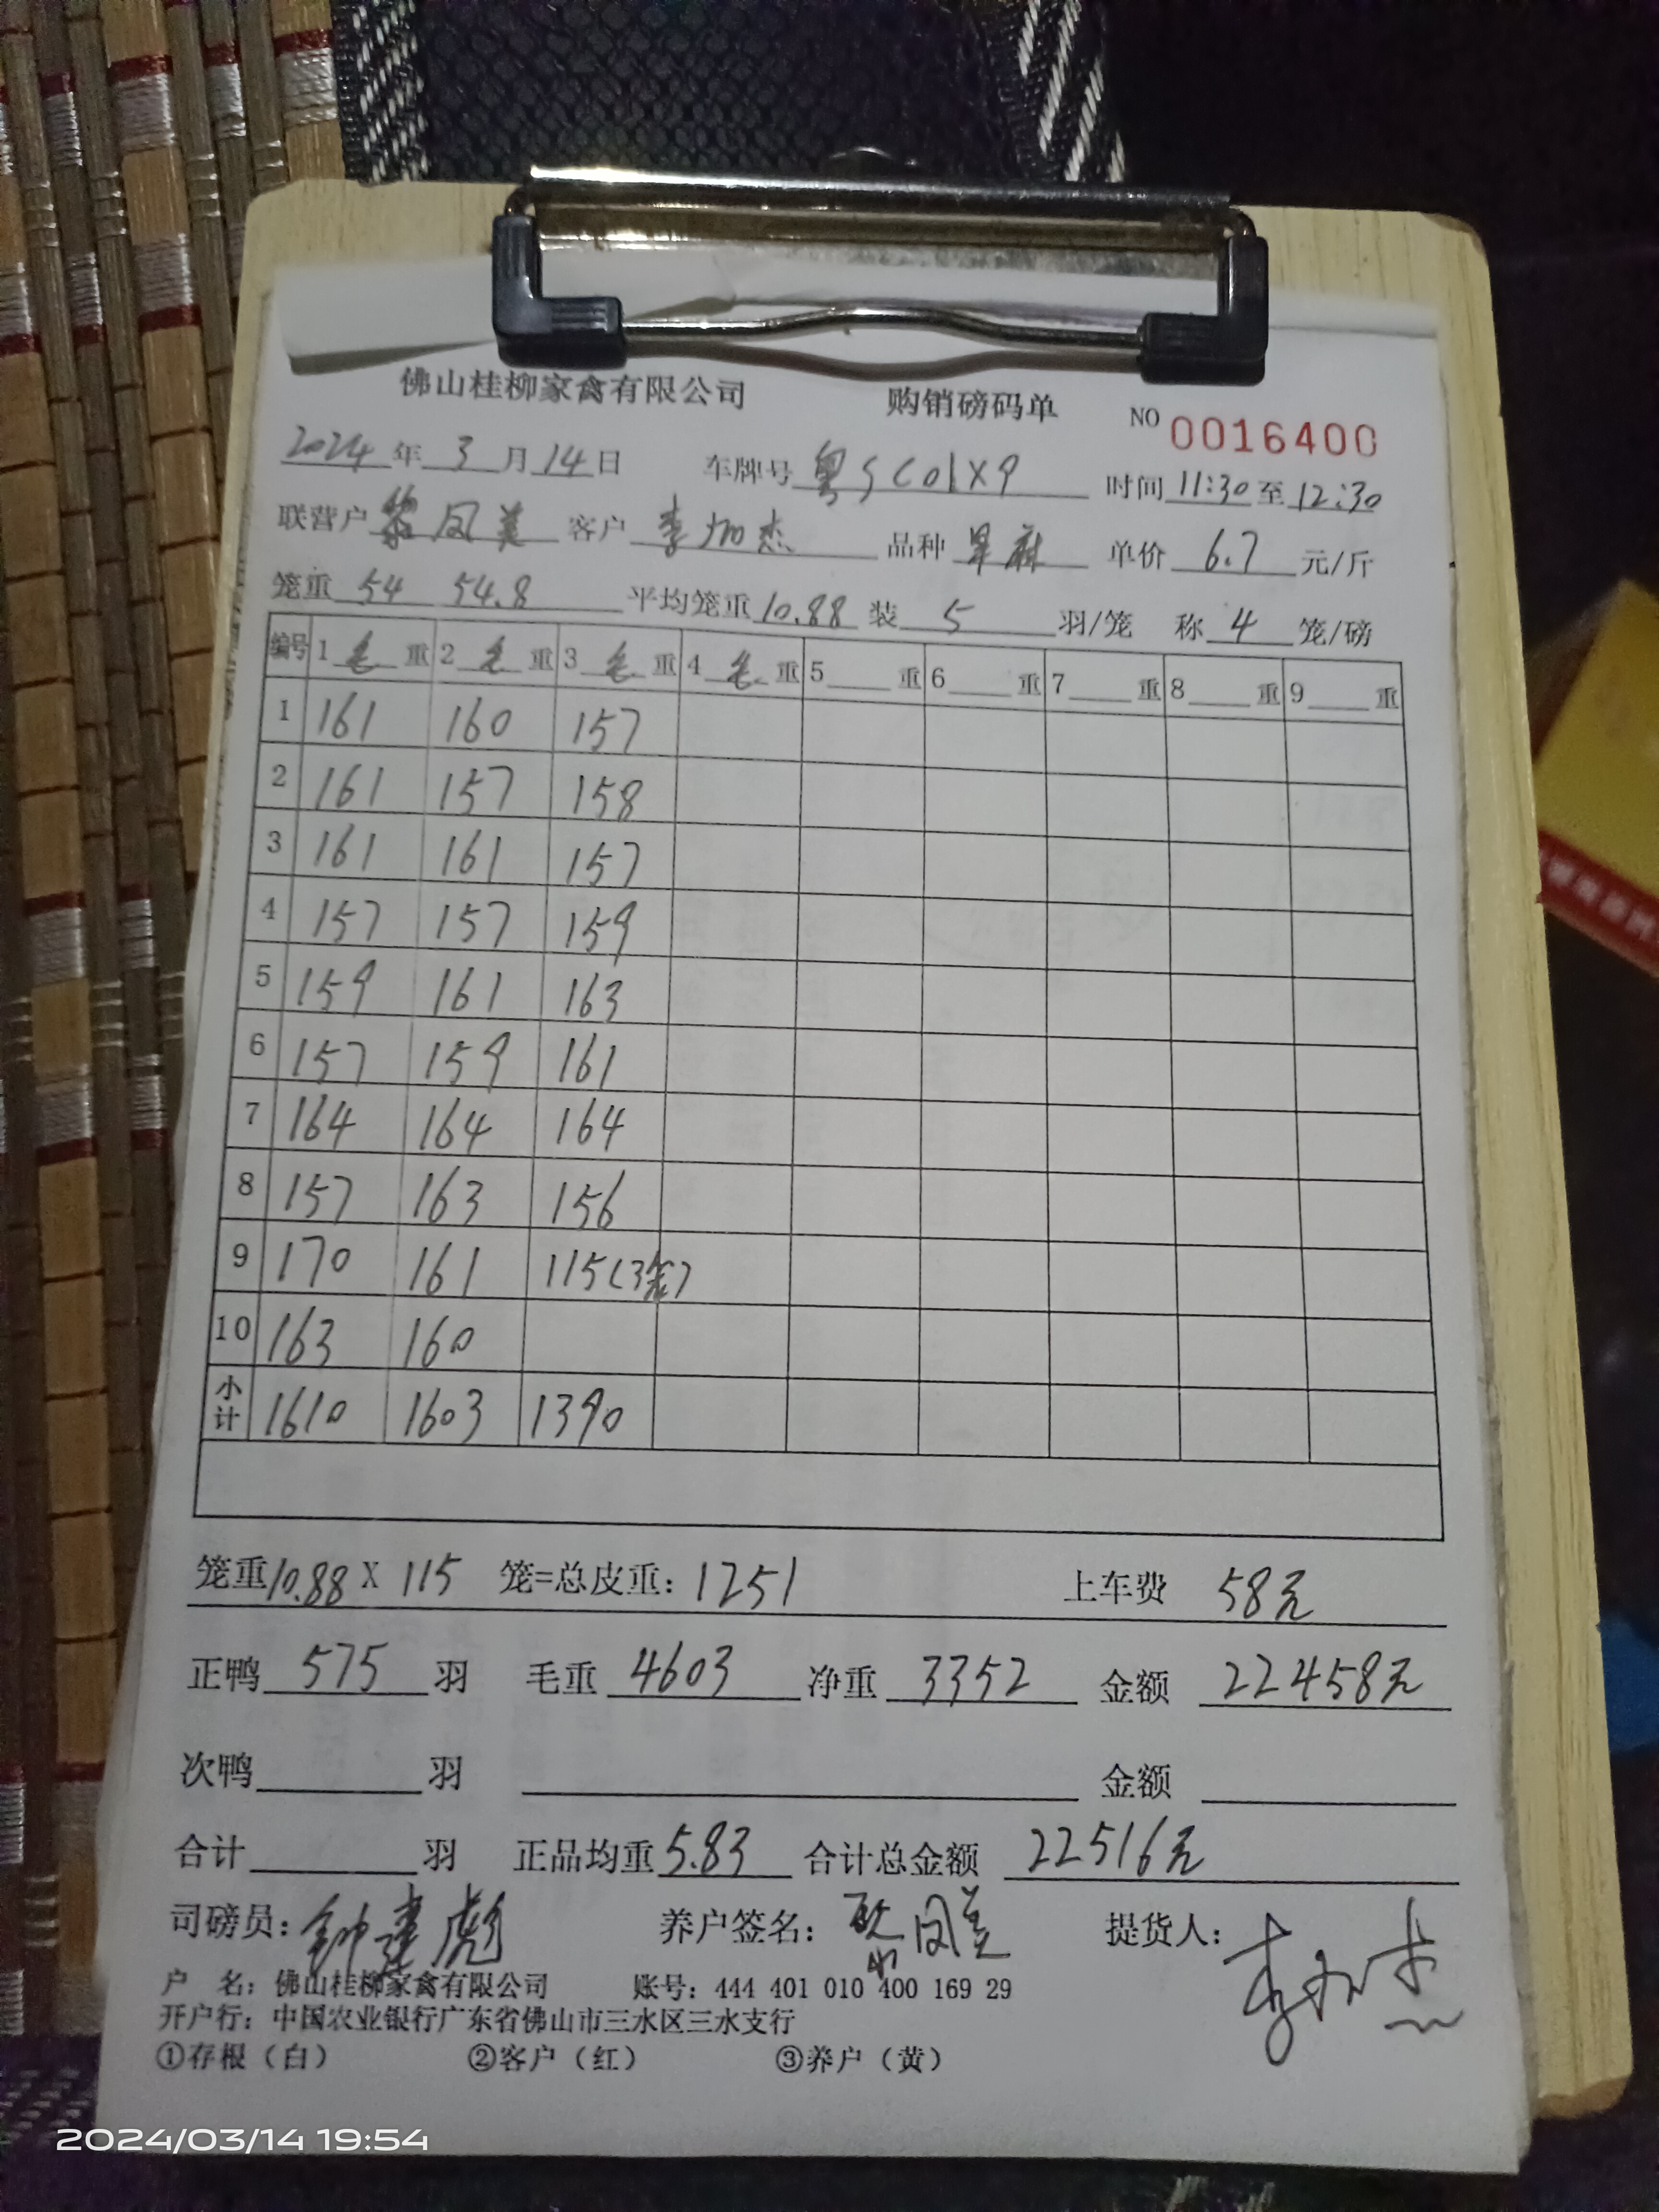 佛山桂柳家禽有限公司 购销磅码单 NO 0016400
2024年3月14日 车牌号 粤SC01X9 时间 11:30至12:30
联营户 黎凤美 客户 李加杰 品种 单价 6.7 元/斤
笼重 54 54.8 平均笼重 10.88 装 5 羽/笼 称 4 笼/磅
编号 1 毛 重 2 毛 重 3 毛 重 4 毛 重 5 重 6 重 7 重 8 重 9 重
1 161 160 157
2 161 157 158
3 161 161 157
4 157 157 159
5 159 161 163
6 157 159 161
7 164 164 164
8 157 163 156
9 170 161 115(3笼)
10 163 160
小计 1610 1603 1390
笼重10.88 X 115 笼=总皮重: 1251 上车费 58元
正鸭 575 羽 毛重 4603 净重 3352 金额 22458元
次鸭 羽 金额
合计 羽 正品均重 5.83 合计总金额 22516元
司磅员: 钟建彪 养户签名: 凤美 提货人: 李加杰
户 名: 佛山桂柳家禽有限公司 账号: 444 401 010 400 169 29
开户行: 中国农业银行广东省佛山市三水区三水支行
①存根（白） ②客户（红） ③养户（黄）
2024/03/14 19:54